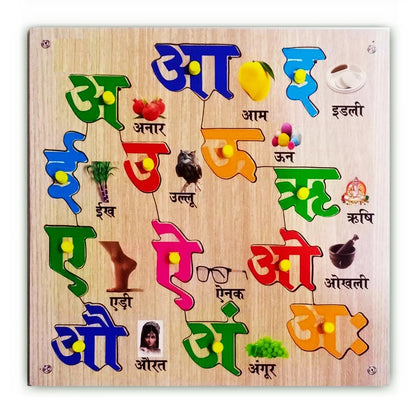 अ आ इ
अनार आम इडली
ई उ ऊ ऋ
ईख उल्लू ऊन ऋषि
ए ऐ ओ
एड़ी ऐनक ओखली
औ अं अः
औरत अंगूर